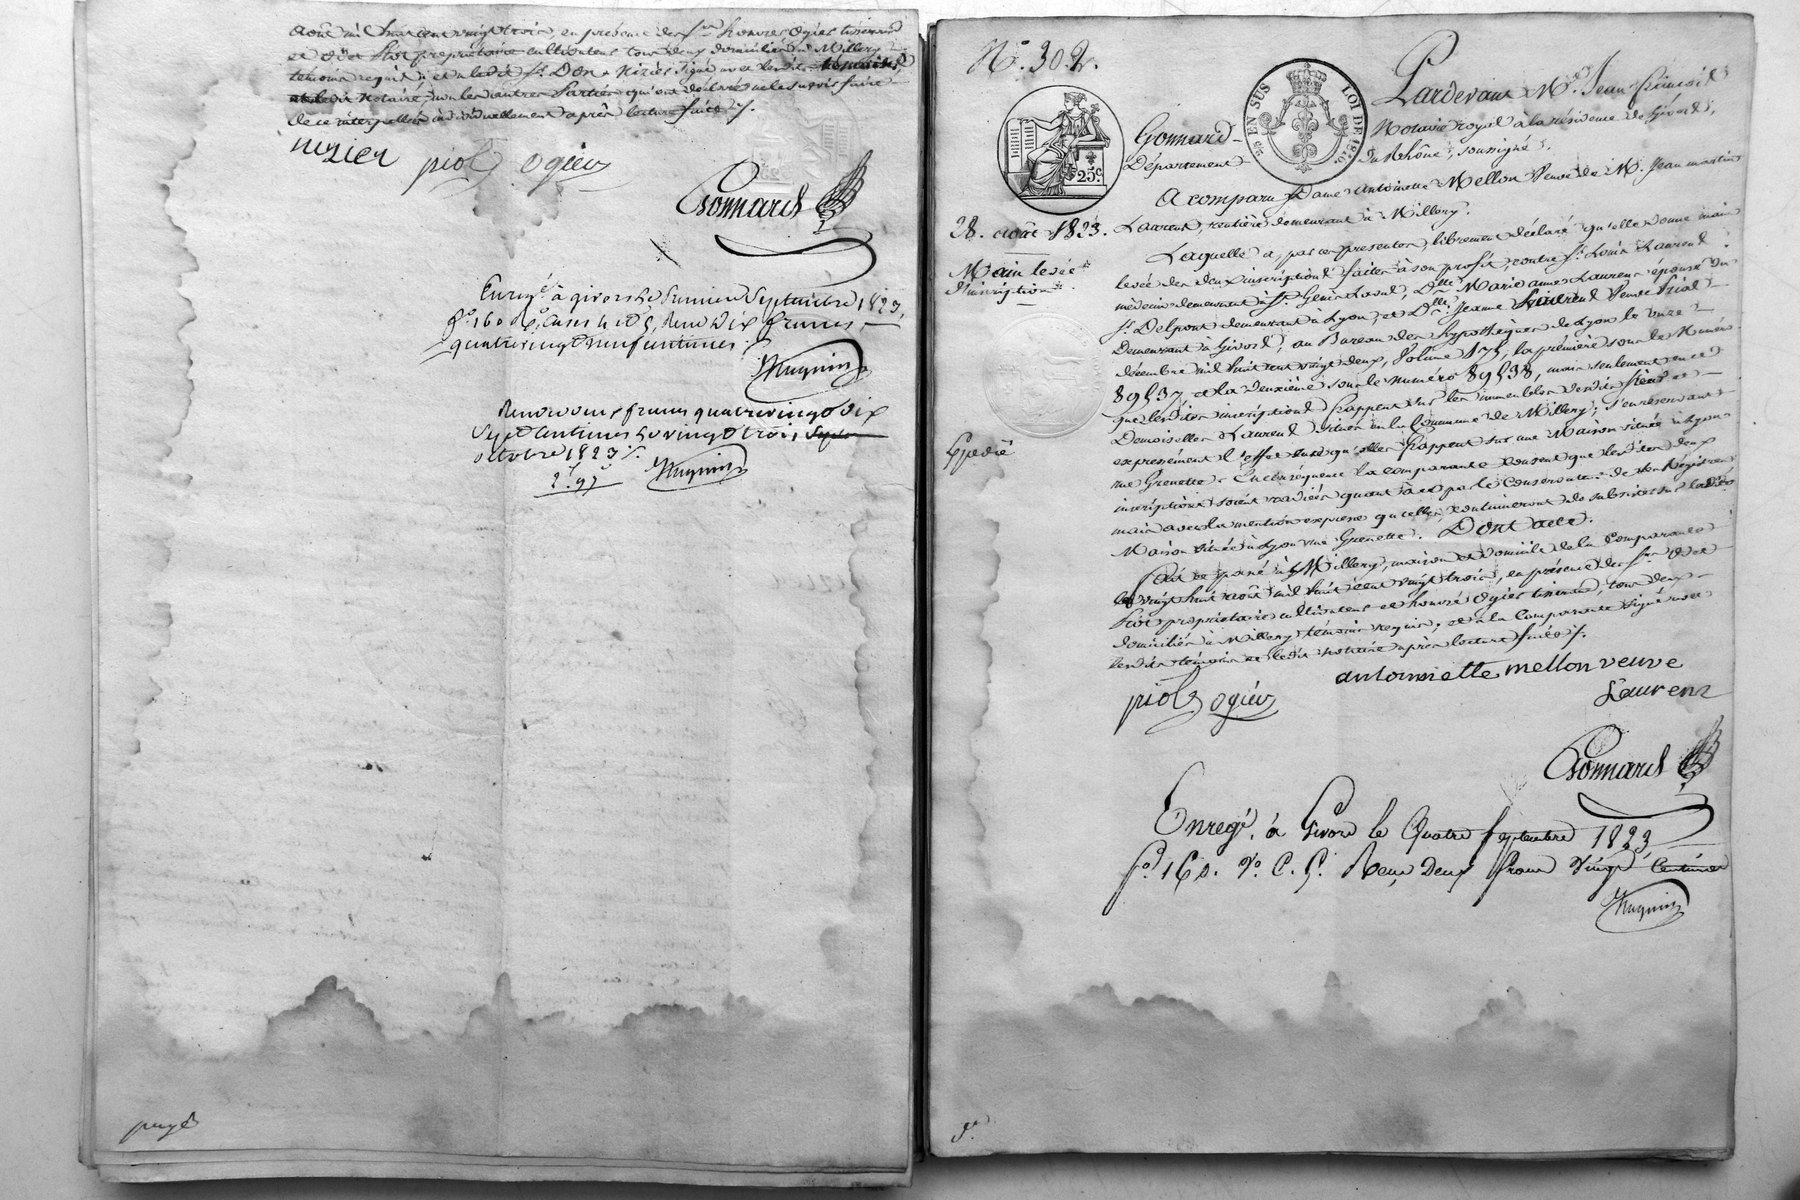 août mil huit cent vingt trois, en présence des Srs. honoré Ogier tisserand
et Piot propriétaire cultivateur tous deux domiciliés à Millery
témoins requis; et a ledit Sr. Nizier signé avec lesdits témoins
et ledit Notaire, non les autres parties qui ont déclaré ne le savoir faire
de ce interpellées individuellement après lecture faite ./.
nizier piot ogier
Gonnard
Enregé. à givors le Septembre 1823,
fo. 160 Ro. Cases 4 et 5, Reçu dix francs
quatrevingt neuf centimes ./.
Reçu francs quatrevingt dix
Sept centimes le vingt trois
octobre 1823 ./.
2. 97
No. 302.
EN SUS
LOI DE 1816.
25 c
Pardevant Me. Jean
Gonnard Notaire royal à la résidence de Givors,
Département du Rhône, soussigné,
A comparu Dame Antoinette Mellon Veuve de M. Jean martin
28. août 1823. Laurent, rentière demeurant à Millery.
Main levée
d'inscription
Laquelle a, par ces présentes, librement déclaré qu'elle donne main
levée des deux inscriptions faites à son profit, contre Sr. Louis Laurent
médecin demeurant à St. Genis Laval, Dlle. Marie anne Laurent épouse du
Sr. Delpont demeurant à Lyon, et Dlle. Jeanne Laurent Veuve
demeurant à Givors, au Bureau des hypothèques de Lyon le onze
décembre mil huit cent vingt deux, Volume 175, la première sous le Numéro
89537, et la deuxième sous le numéro 89538, mais seulement en ce
que lesdites inscriptions frappent sur les immeubles desdits Sieur et
Demoiselles Laurent situés en la Commune de Millery; s'en réservant
Expedié
expressément l'effet en ce qu'elles frappent sur une Maison située à Lyon
rue Grenette. En conséquence la comparante consent que lesdites deux
inscriptions soient radiées quant à ce par le Conservateur de ses Régistres
mais avec la mention expresse qu'elles continueront de subsister sur ladite
Maison située à Lyon rue Grenette. Dont acte.
Fait et passé à Millery, maison et domicile de la Comparante
le vingt huit août mil huit cent vingt trois, en présence des Srs.
Piot propriétaire cultivateur et honoré Ogier tisserand, tous deux
domiciliés à Millery témoins requis; et a la Comparante signé avec
lesdits témoins et ledit Notaire après lecture faite ./.
antoiniette mellon veuve
Laurent
piot ogier
Gonnard
Enregé. à Givors le Quatre Septembre 1823
fo. 160. Vo. C. 5. Reçu Deux francs Vingt Centimes